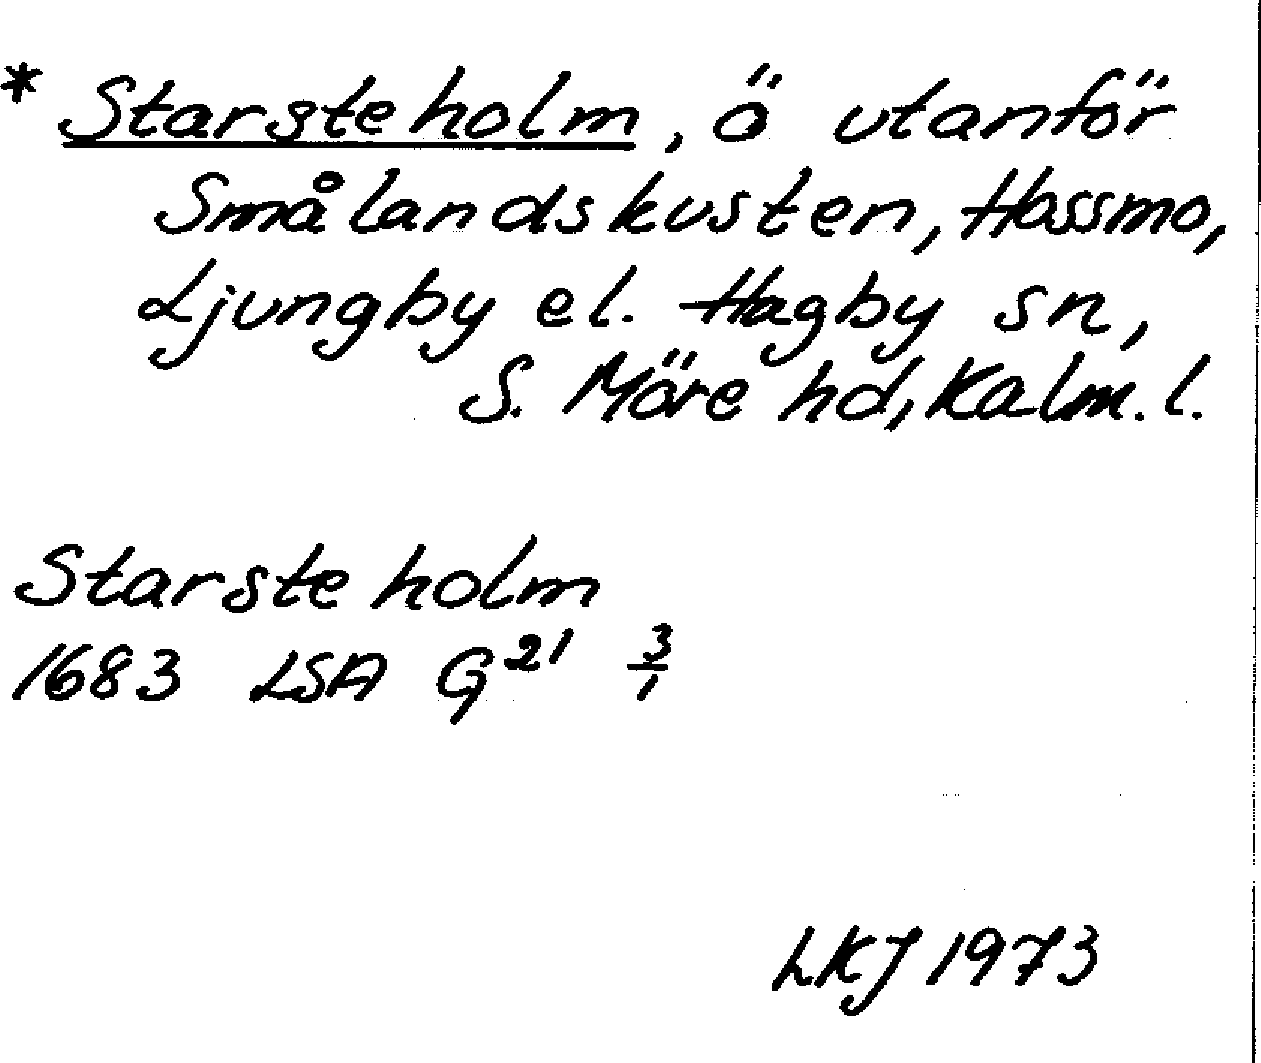 * Starsteholm, ö utanför
Smålandskusten, Hossmo,
Ljungby el. Hagby sn,
S. Möre hd, Kalm. l.
Starsteholm
1683 LSA G²¹ 3/1
LKJ 1973